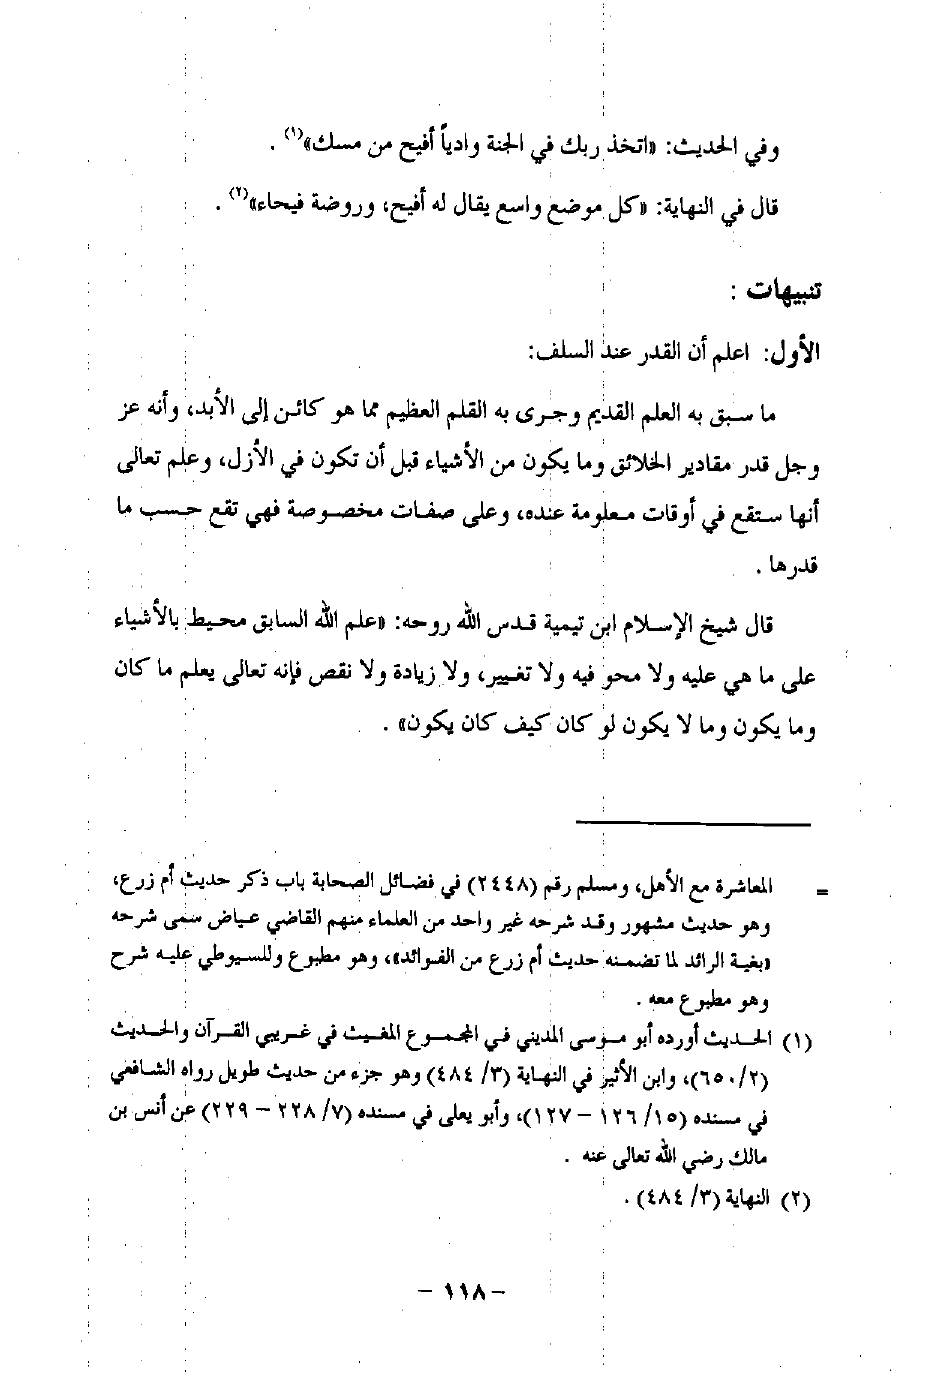 وفي الحديث: «اتخذ ربك في الجنة وادياً أفيح من مسك»(١) .
قال في النهاية: «كل موضع واسع يقال له أفيح، وروضة فيحاء»(٢) .
تنبيهات :
الأول: اعلم أن القدر عند السلف:
ما سبق به العلم القديم وجرى به القلم العظيم مما هو كائن إلى الأبد، وأنه عز
وجل قدر مقادير الخلائق وما يكون من الأشياء قبل أن تكون في الأزل، وعلم تعالى
أنها ستقع في أوقات معلومة عنده، وعلى صفات مخصوصة فهي تقع حسب ما
قدرها .
قال شيخ الإسلام ابن تيمية قدس الله روحه: «علم الله السابق محيط بالأشياء
على ما هي عليه ولا محو فيه ولا تغيير، ولا زيادة ولا نقص فإنه تعالى يعلم ما كان
وما يكون وما لا يكون لو كان كيف كان يكون» .
= المعاشرة مع الأهل، ومسلم رقم (٢٤٤٨) في فضائل الصحابة باب ذكر حديث أم زرع،
وهو حديث مشهور وقد شرحه غير واحد من العلماء منهم القاضي عياض سمى شرحه
«بغية الرائد لما تضمنه حديث أم زرع من الفوائد»، وهو مطبوع وللسيوطي عليه شرح
وهو مطبوع معه .
(١) الحديث أورده أبو موسى المديني في المجموع المغيث في غريبي القرآن والحديث
(٢/ ٦٥٠)، وابن الأثير في النهاية (٣/ ٤٨٤) وهو جزء من حديث طويل رواه الشافعي
في مسنده (١٥/ ١٢٦ - ١٢٧)، وأبو يعلى في مسنده (٧/ ٢٢٨ - ٢٢٩) عن أنس بن
مالك رضي الله تعالى عنه .
(٢) النهاية (٣/ ٤٨٤) .
- ١١٨ -